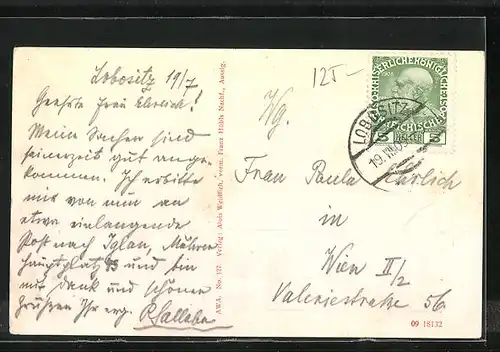 Lobositz 19/7
Geehrte Frau Ehrlich!
Meine Sachen sind
seinerzeit gut ange-
kommen. Ich erbitte
mir von nun an
etwa einlangende
Post nach Iglau, Mähren
Hauptplatz 45 und bin
mit Dank und schönen
Grüßen Ihr erg.
AWA. No. 177. Verlag: Alois Weidlich, vorm. Franz Hübls Nachf., Aussig.
12T—
Wg.
Frau Paula Ehrlich
in
Wien II/2
Valeriestraße 56.
1908
LOBOSITZ
19.VII.09
HELLER
09 18132